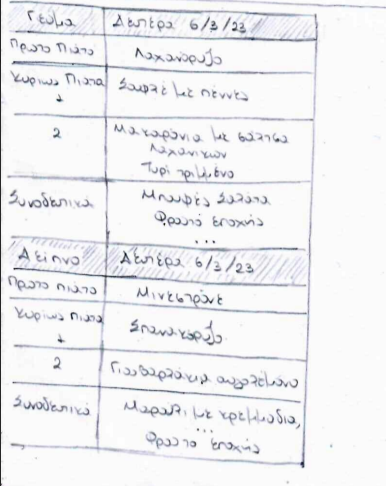 Γεύμα Δευτέρα 6/3/23
Πρώτο Πιάτο Λαχανόρυζο
Κυρίως Πιάτα Σουφλέ με πέννες
1
2 Μακαρόνια με σάλτσα
Λαχανικών
Τυρί τριμμένο
Συνοδευτικά Μπουφές Σαλάτα
Φρούτο εποχής
...
Δείπνο Δευτέρα 6/3/23
Πρώτο πιάτο Μινεστρόνε
Κυρίως πιάτα Σπανακόρυζο
1
2 Γιουβαρλάκια αυγολέμονο
Συνοδευτικά Μαρούλι με κρεμμύδια,
...
Φρούτο εποχής